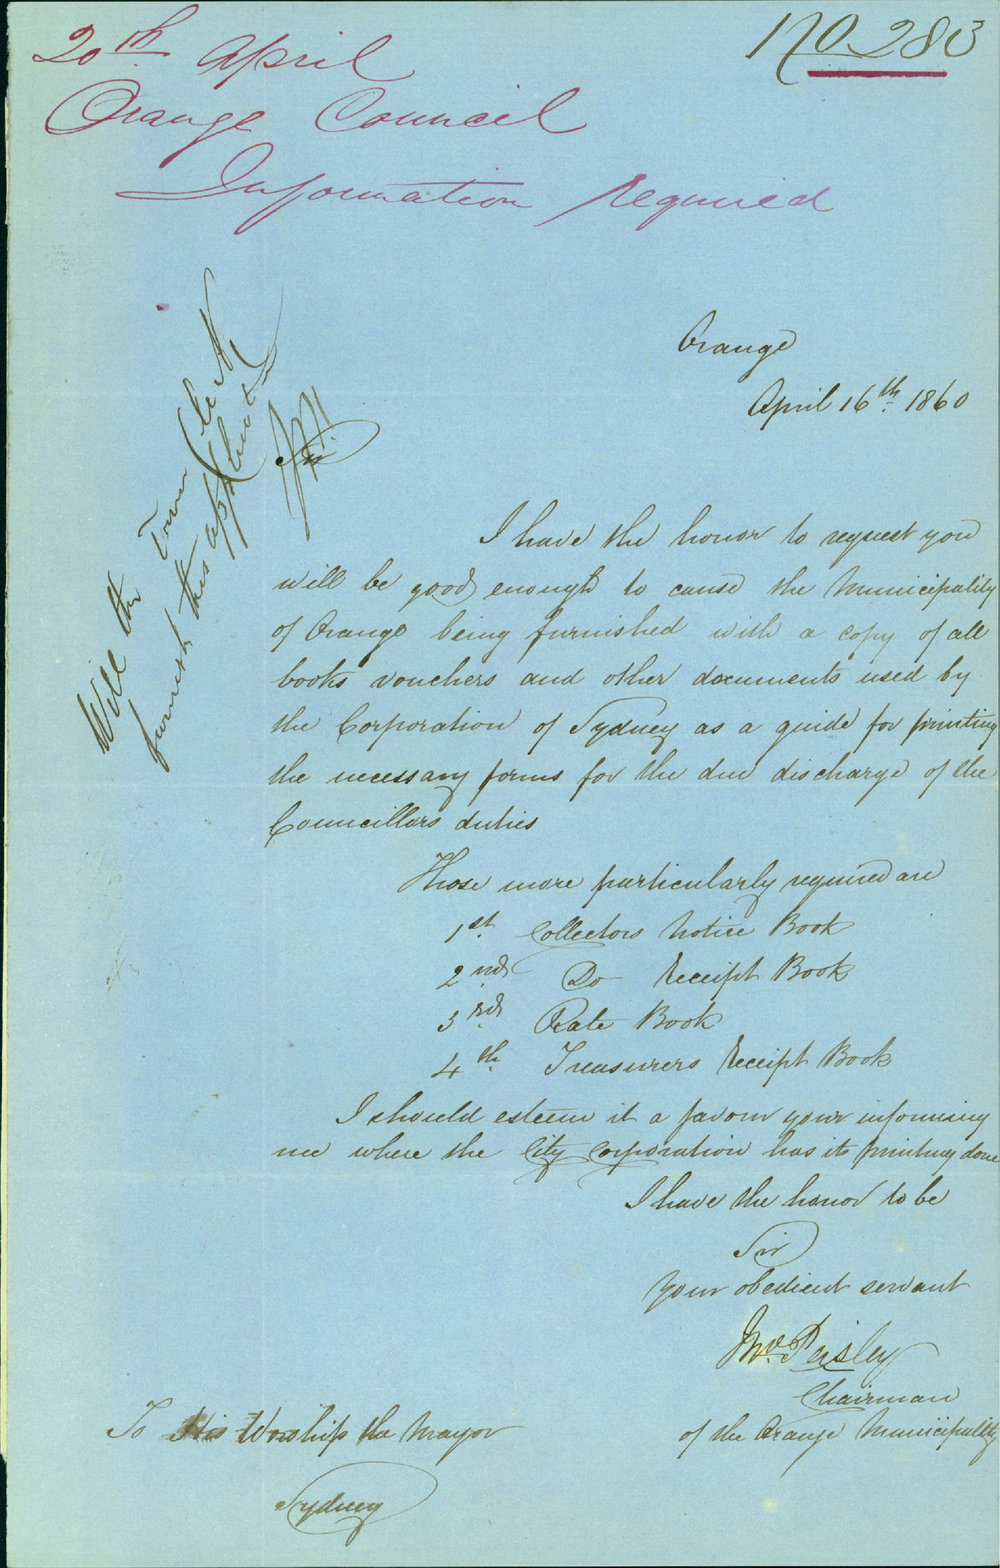 20th April
No 283
Orange Council
Information required
Orange
April 16th 1860
Will the Town Clerk
furnish this applicant
Sir
I have the honor to request you
will be good enough to cause the Municipality
of Orange being furnished with a copy of all
books vouchers and other documents used by
the Corporation of Sydney as a guide for printing
the necessary forms for the due discharge of the
Councillors duties
Those more particularly required are
1st Collectors Notice Book
2nd Do Receipt Book
3rd Rate Book
4th Treasurers Receipt Book
I should esteem it a favour your informing
me where the City Corporation has its printing done
I have the honor to be
Sir
Your obedient servant
Jno. Peisley
Chairman
of the Orange Municipality
To His Worship the Mayor
Sydney